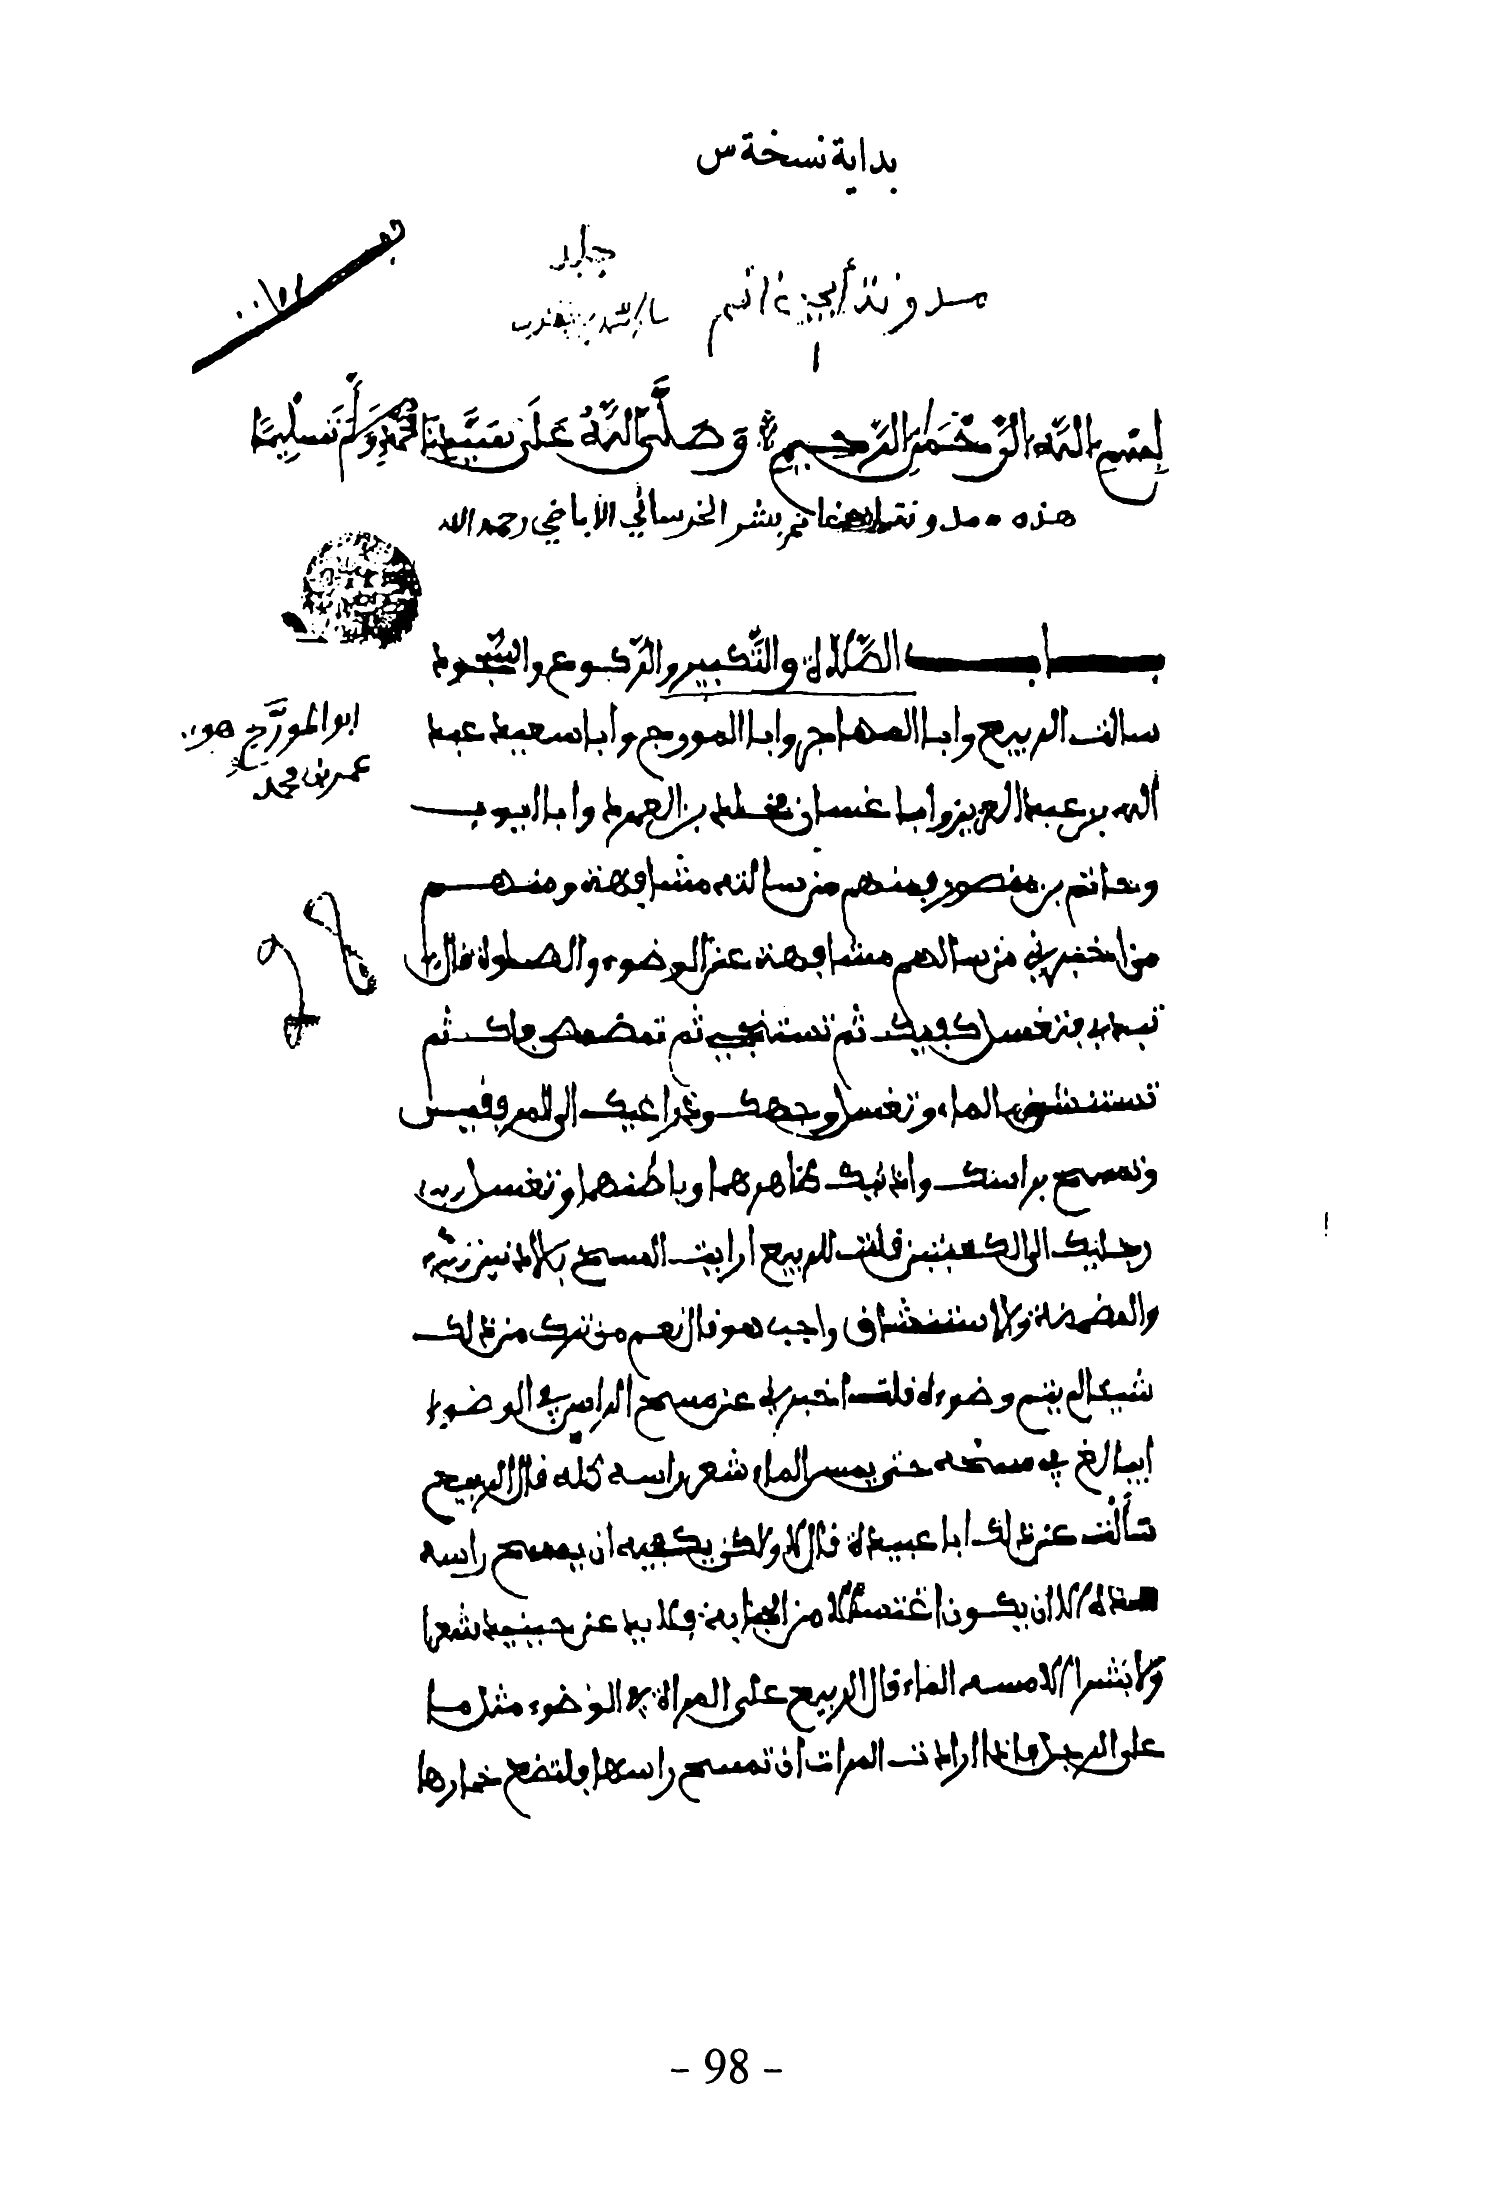 بداية نسخة س
جلد
مدونة أبي غانم
١
بسم الله الرحمن الرحيم وصلى الله على نبينا محمد وسلم تسليما
هذه مدونة أبي غانم بشر الخرساني الأباضي رحمه الله
باب الصلاة والتكبير والركوع والسجود
سالت الربيع وابا المهاجر وابا المورج وأبا سعيد عبد
ابو المورّج هو
عمر بن محمد
الله بن عبد العزيز وأبا غسان مخلد بن العمرد وابا ايوب
وحاتم بن منصور فمنهم من سالته مشافهة ومنهم
من اخبرني من سالهم مشافهة عن الوضوء والصلوة قال
تبدا فتغسل كفيك ثم تستنجي ثم تمضمض فاك ثم
تستنشق بالماء وتغسل وجهك وذراعيك الى المرفقين
وتمسح براسك واذنيك ظاهرهما وباطنهما وتغسل
رجليك الى الكعبين قلت للربيع ارايت المسح بالاذنين
والمضمضة والاستنشاق واجب هو قال نعم من ترك من ذلك
شيئا لم يتم وضوءه قلت اخبرني عن مسح الراس في الوضوء
ايبالغ في مسحه حتى يمس الماء شعر راسه كله قال الربيع
سألت عن ذلك ابا عبيدة قال لا ولكن يكفيه ان يمسح راسه
هكذا الا ان يكون اغتسالا من الجنابة فلا بد عن حينئذ شعرا
ولا بشرا الا مسه الماء قال الربيع على المراة في الوضوء مثل ما
على الرجل فاذا ارادت المرات ان تمسح راسها فلتضع خمارها
- 98 -